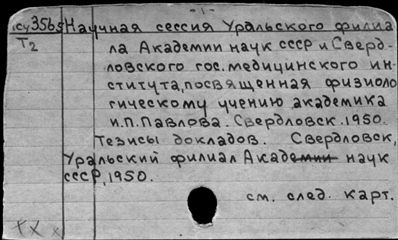 - 1 -
Научная сессия Уральского филиа
Т2
ла Академии наук СССР и Сверд-
ловского гос. медицинского ин-
ститута, посвященная физиоло
гическому учению академика
И.П. Павлова. Свердловск. 1950.
Тезисы докладов. Свердловск,
Уральский филиал Академии наук
СССР, 1950.
см. след. карт.